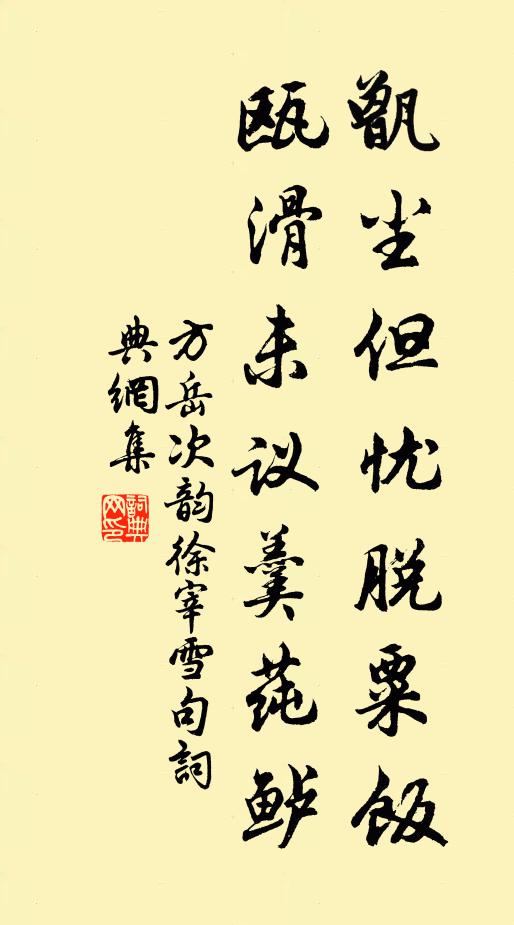 甑尘但忧脱粟饭
瓯滑未议羹莼鲈
方岳次韵徐宰雪句詞
典網集
詞典
网印